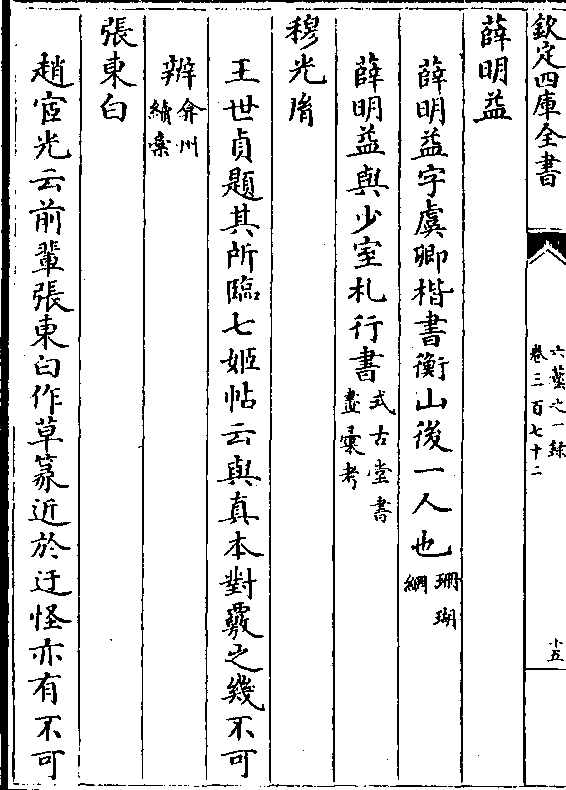 欽定四庫全書
六藝之一録
卷三百七十二
十五
薛明益
薛明益字虞卿楷書衡山後一人也珊瑚
網
薛明益與少室札行書式古堂書
畫彚考
穆光𦙍
王世貞題其所臨七姬帖云與真本對覈之幾不可
辨弇州
續槀
張東白
趙宧光云前輩張東白作草篆近於迂怪亦有不可